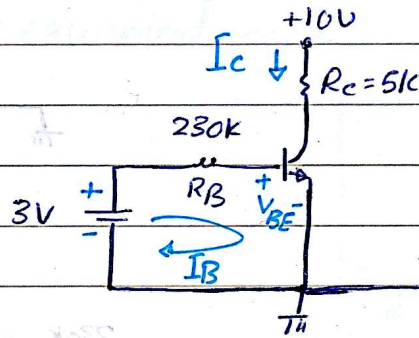 +10V
Ic ↓
Rc = 5K
230K
RB
+
3V
-
+
VBE
-
IB